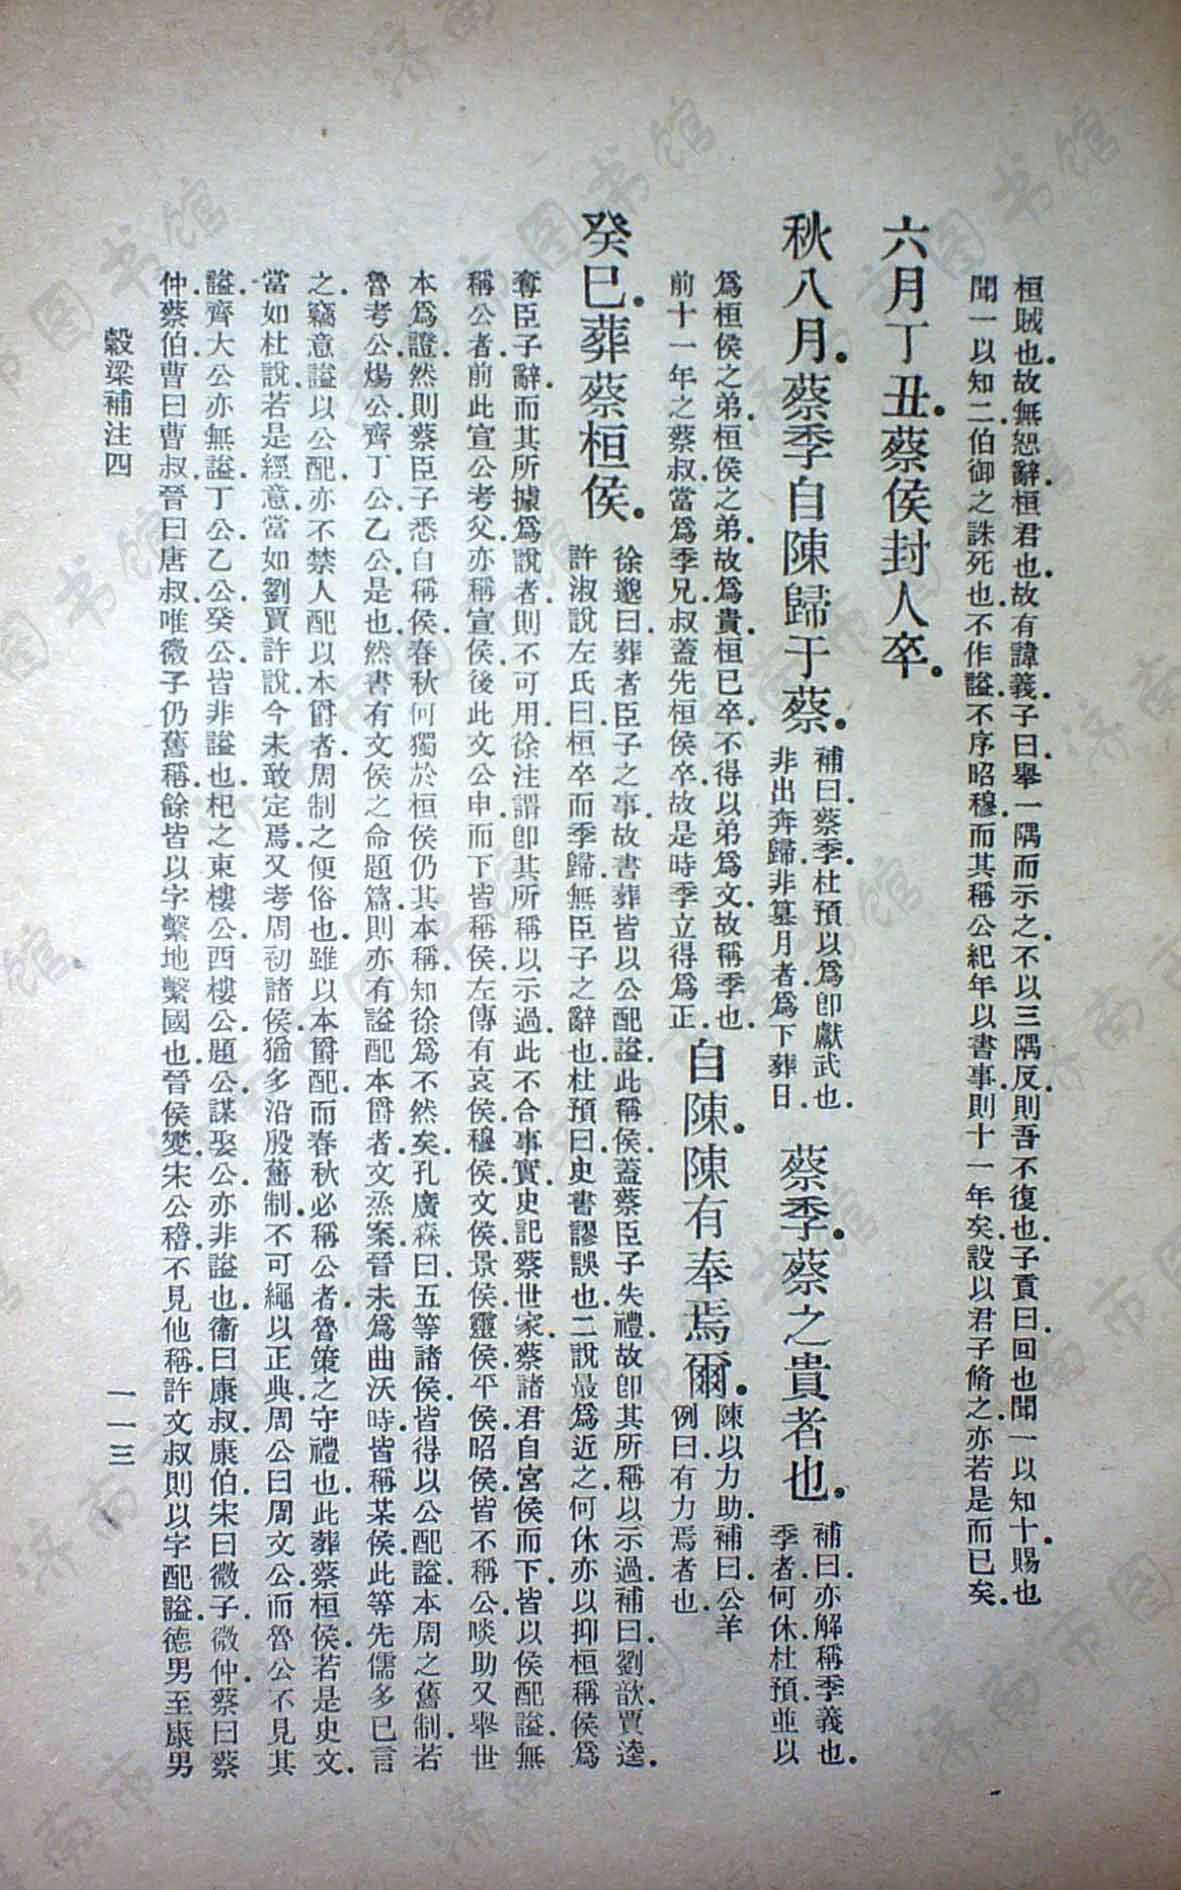 桓賊也.故無恕辭.桓君也.故有諱義.子曰.舉一隅而示之.不以三隅反.則吾不復也.子貢曰.回也聞一以知十.賜也
聞一以知二.伯御之誅死也.不作謚.不序昭穆.而其稱公紀年以書事.則十一年矣.設以君子脩之.亦若是而已矣.
六月丁丑.蔡侯封人卒.
秋八月.蔡季自陳歸于蔡.
補曰.蔡季.杜預以爲卽獻武也.
非出奔歸.非篡月者.爲下葬日.
蔡季.蔡之貴者也.
補曰.亦解稱季義也.
季者.何休.杜預並以
爲桓侯之弟.桓侯之弟.故爲貴.桓已卒.不得以弟爲文.故稱季也.
前十一年之蔡叔.當爲季兄.叔蓋先桓侯卒.故是時季立得爲正.
自陳.陳有奉焉爾.
陳以力助.補曰.公羊
例曰.有力焉者也.
癸巳.葬蔡桓侯.
徐邈曰.葬者.臣子之事.故書葬皆以公配謚.此稱侯.蓋蔡臣子失禮.故卽其所稱以示過.補曰.劉歆.賈逵.
許淑說左氏曰.桓卒而季歸.無臣子之辭也.杜預曰.史書謬誤也.二說最爲近之.何休亦以抑桓稱侯.爲
奪臣子辭.而其所據爲說者.則不可用.徐注謂卽其所稱以示過.此不合事實.史記蔡世家.蔡諸君自宮侯而下.皆以侯配謚.無
稱公者.前此宣公考父.亦稱宣侯.後此文公申.而下皆稱侯.左傳有哀侯.穆侯.文侯.景侯.靈侯.平侯.昭侯.皆不稱公.啖助又舉世
本爲證.然則蔡臣子悉自稱侯.春秋何獨於桓侯仍其本稱.知徐爲不然矣.孔廣森曰.五等諸侯.皆得以公配謚.本周之舊制.若
魯考公.煬公.齊丁公.乙公是也.然書有文侯之命題篇.則亦有謚配本爵者.文烝案.晉未爲曲沃時.皆稱某侯.此等先儒多已言
之.竊意謚以公配.亦不禁人配以本爵者.周制之便俗也.雖以本爵配.而春秋必稱公者.魯策之守禮也.此葬蔡桓侯.若是史文.
當如杜說.若是經意.當如劉賈許說.今未敢定焉.又考周初諸侯.猶多沿殷舊制.不可繩以正典.周公曰周文公.而魯公不見其
謚.齊大公亦無謚.丁公.乙公.癸公.皆非謚也.杞之東樓公.西樓公.題公.謀娶公.亦非謚也.衞曰康叔.康伯.宋曰微子.微仲.蔡曰蔡
仲.蔡伯.曹曰曹叔.晉曰唐叔.唯微子仍舊稱.餘皆以字繫地繫國也.晉侯燮.宋公稽.不見他稱.許文叔則以字配謚.德男至康男
穀梁補注四
一一三